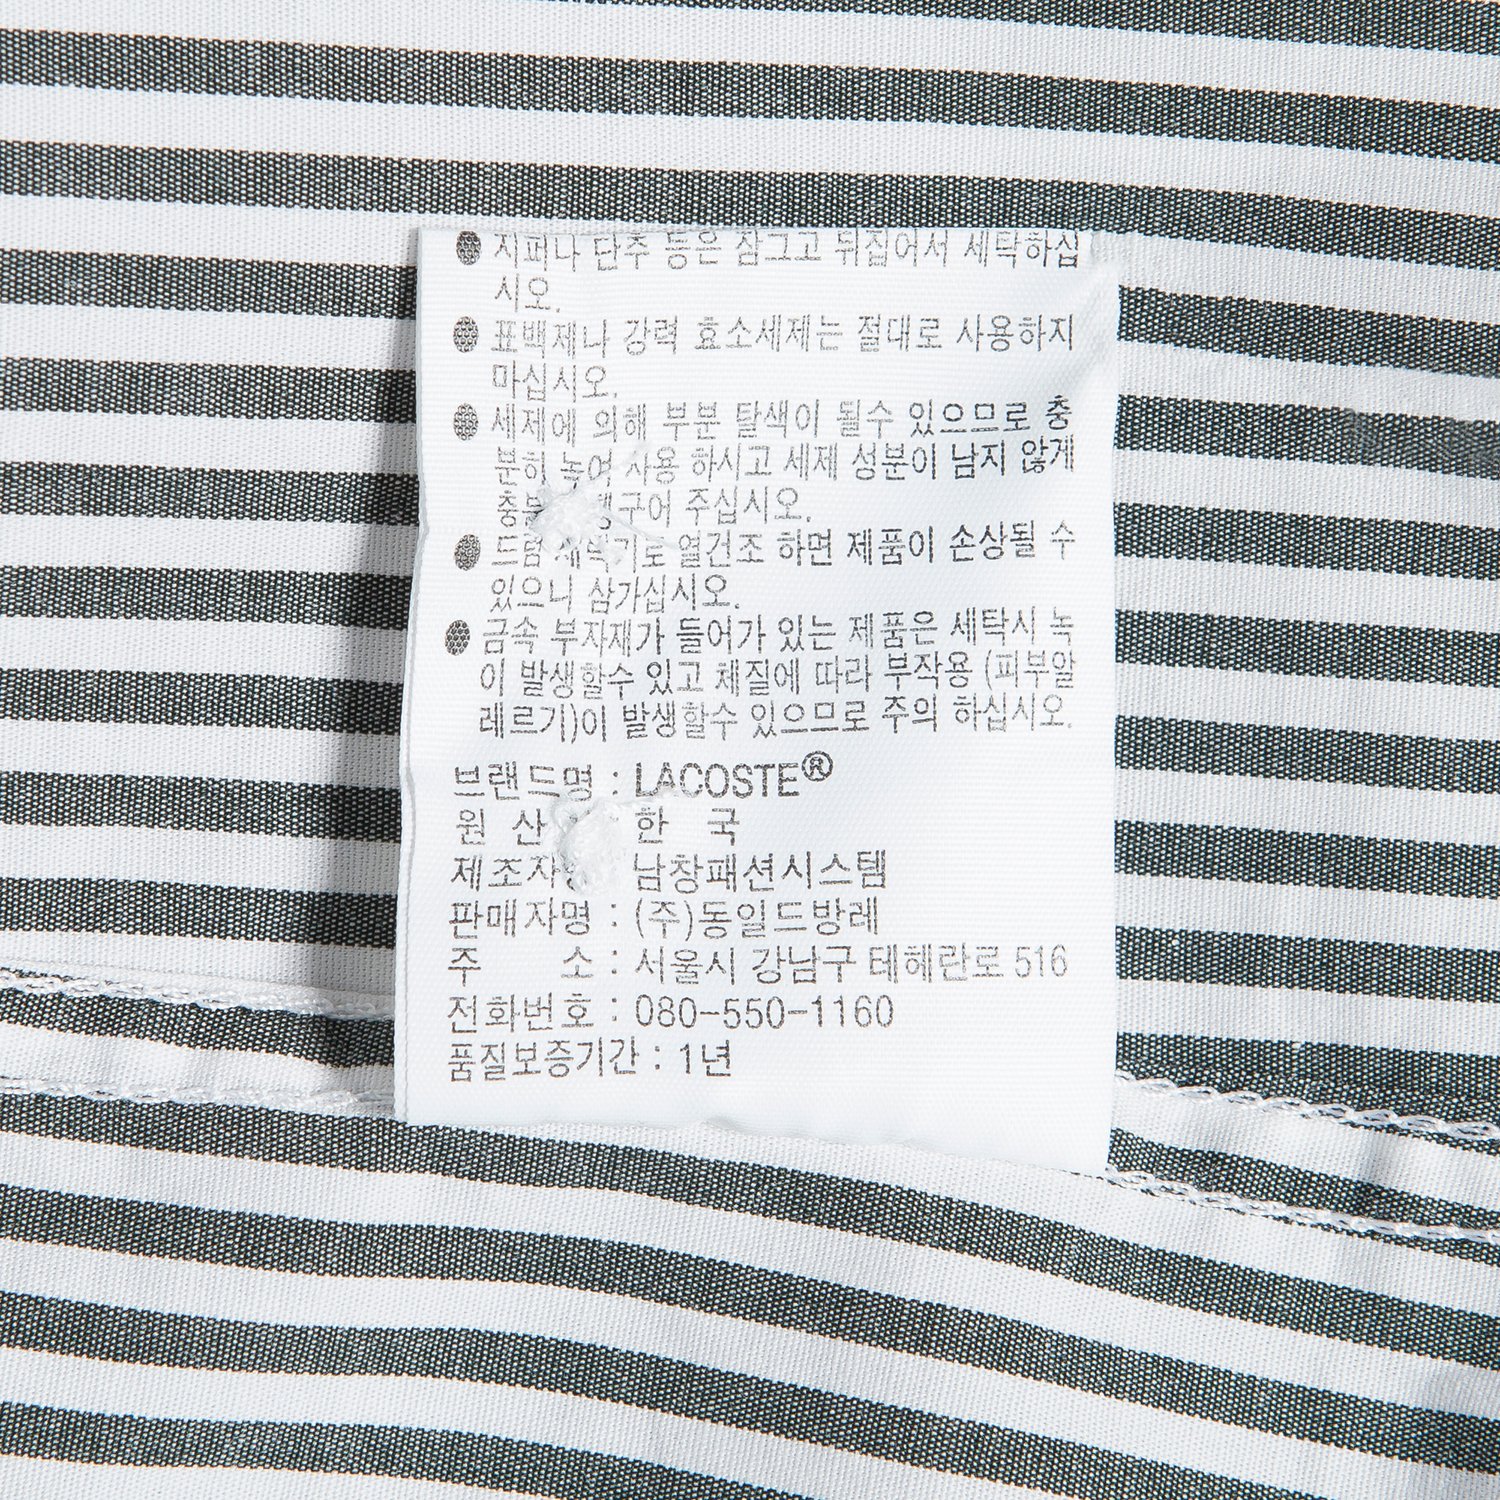 ● 지퍼나 단추 등은 잠그고 뒤집어서 세탁하십
시오.
● 표백제나 강력 효소세제는 절대로 사용하지
마십시오.
● 세제에 의해 부분 탈색이 될수 있으므로 충
분히 녹여 사용 하시고 세제 성분이 남지 않게
주십시오.
● 드럼 세탁기로 열건조 하면 제품이 손상될 수
있으니 삼가십시오.
● 금속 부자재가 들어가 있는 제품은 세탁시 녹
이 발생할수 있고 체질에 따라 부작용 (피부알
레르기)이 발생할수 있으므로 주의 하십시오.
브랜드명 : LACOSTE®
원 산 한 국
제조자 남창패션시스템
판매자명 : (주)동일드방레
주 소 : 서울시 강남구 테헤란로 516
전화번호 : 080-550-1160
품질보증기간 : 1년